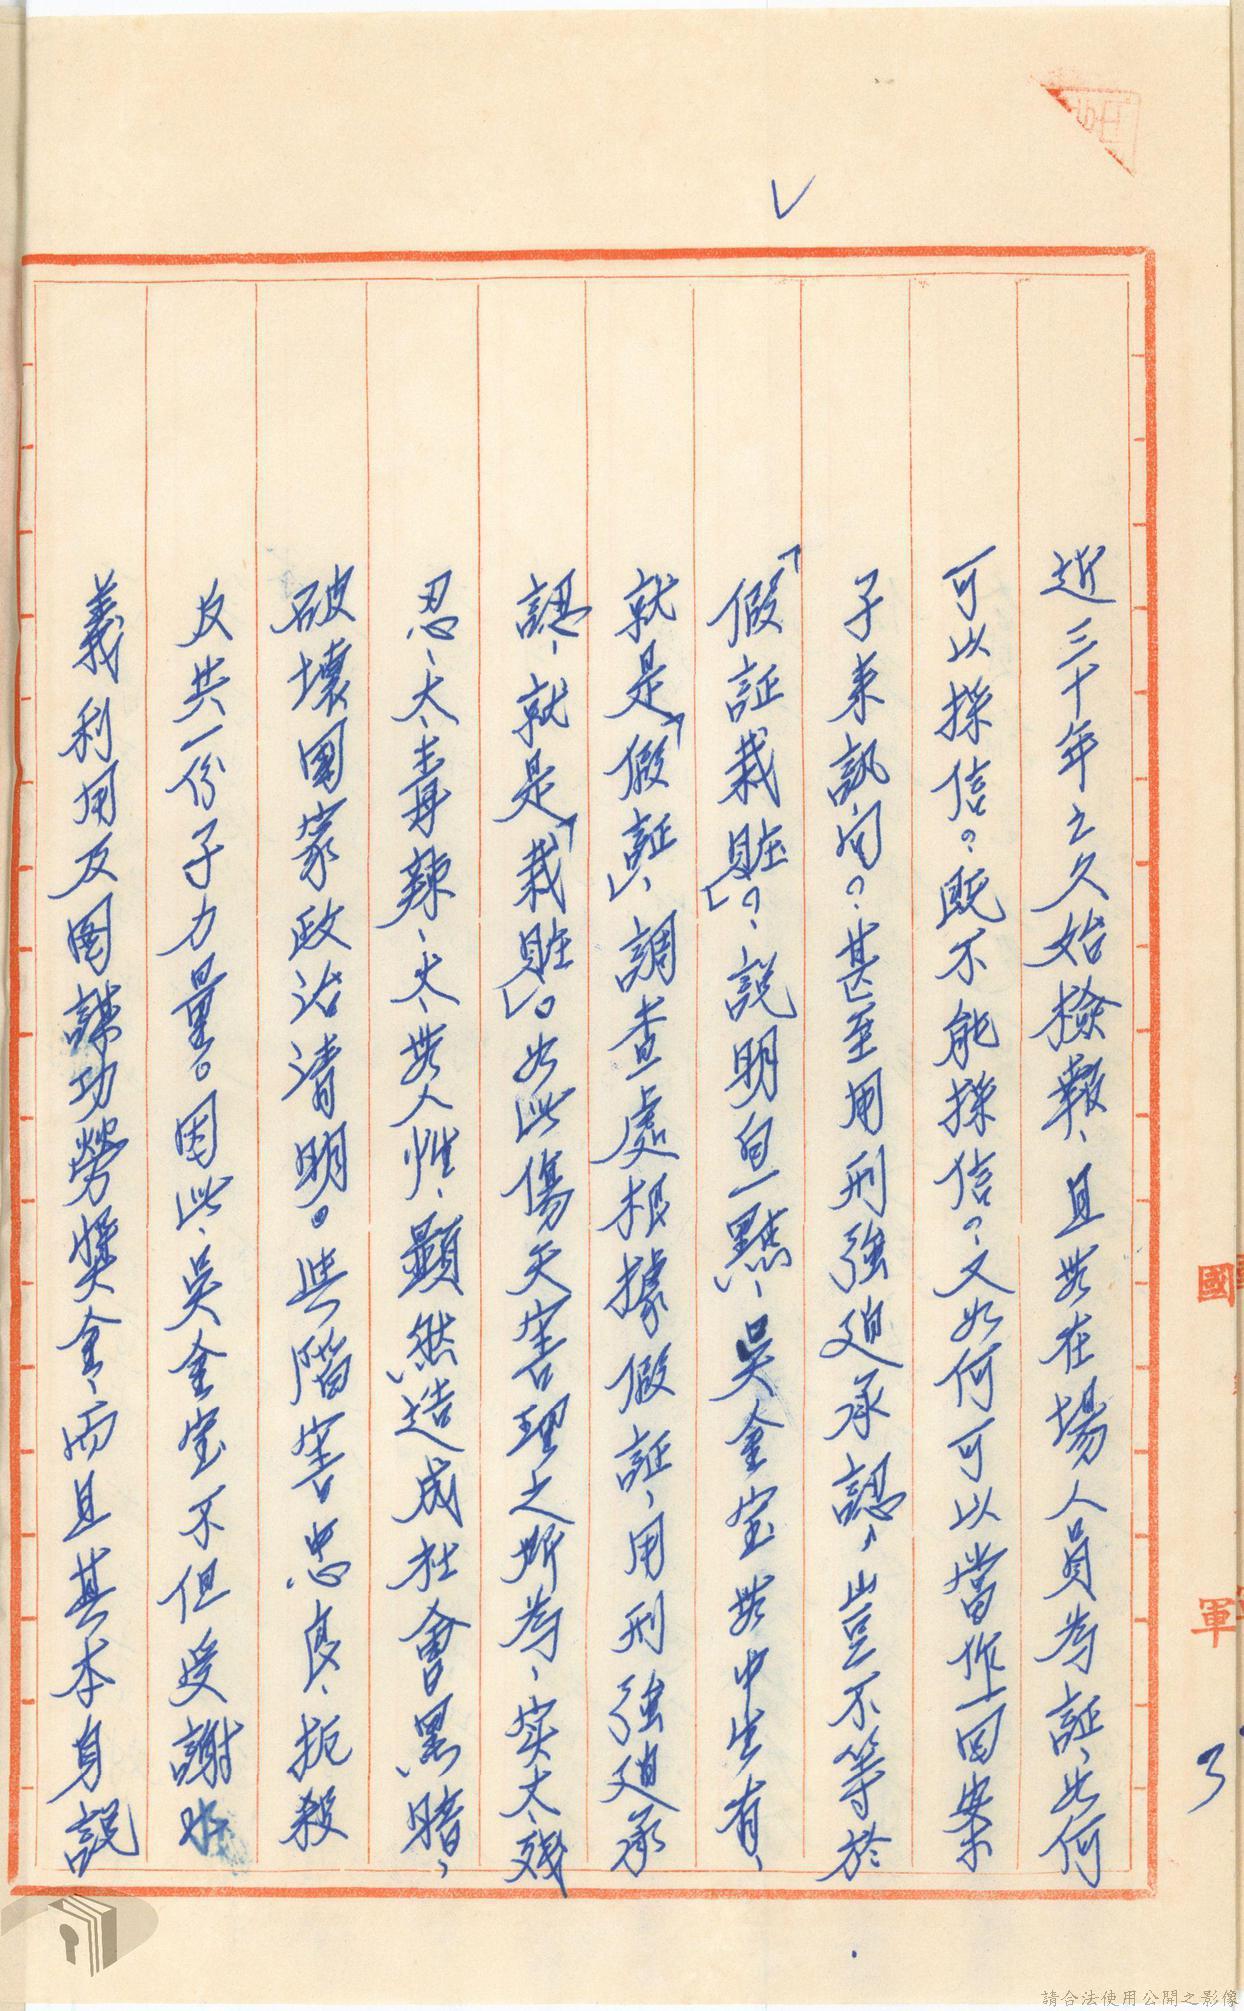 近三十年之久始檢報、且無在場人員為証、如何
可以採信？既不能採信？又如何可以當作一回案
子來訊问？甚至用刑強廹承認，豈不等於
「假証栽賍」？說明白一點、吳金宝無中生有、
就是「假証」、調查處根據假証，用刑強廹承
認、就是「栽賍」。如此傷天害理之所為，实太殘
忍、太毒辣、太無人性、顯然造成社會黑暗，
破壞國家政治清明。些階害忠良、扼殺
反共一份子力量。因此、吳金宝不但受謝
義利用反圖謀功勞奨金、而且其本身說
國
軍
3
請合法使用公開之影像